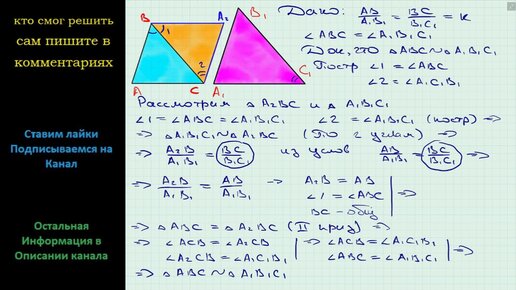 кто смог решить
сам пишите в
комментариях
Ставим лайки
Подписываемся на
Канал
Остальная
Информация в
Описании канала
B A₂ B₁
1
2
A C A₁ C₁
Дано: AB/A₁B₁ = BC/B₁C₁ = k
∠ABC = ∠A₁B₁C₁
Док, что △ABC ∾ △A₁B₁C₁
Постр ∠1 = ∠ABC
∠2 = ∠A₁C₁B₁
Рассмотрим △A₂BC и △A₁B₁C₁
∠1 = ∠ABC = ∠A₁B₁C₁ ∠2 = ∠A₁C₁B₁ (постр) ⇒
⇒ △A₁B₁C₁ ∾ △A₂BC (По 2 углам) ⇒
⇒ A₂B/A₁B₁ = BC/B₁C₁ из услов AB/A₁B₁ = BC/B₁C₁ ⇒
⇒ A₂B/A₁B₁ = AB/A₁B₁ ⇒ A₂B = AB
∠1 = ∠ABC ⇒
BC - общ
⇒ △ABC = △A₂BC (II призн) ⇒
⇒ ∠ACB = ∠A₂CB ⇒ ∠ACB = ∠A₁C₁B₁
∠A₂CB = ∠A₁C₁B₁ ∠ABC = ∠A₁B₁C₁ ⇒
⇒ △ABC ∾ △A₁B₁C₁